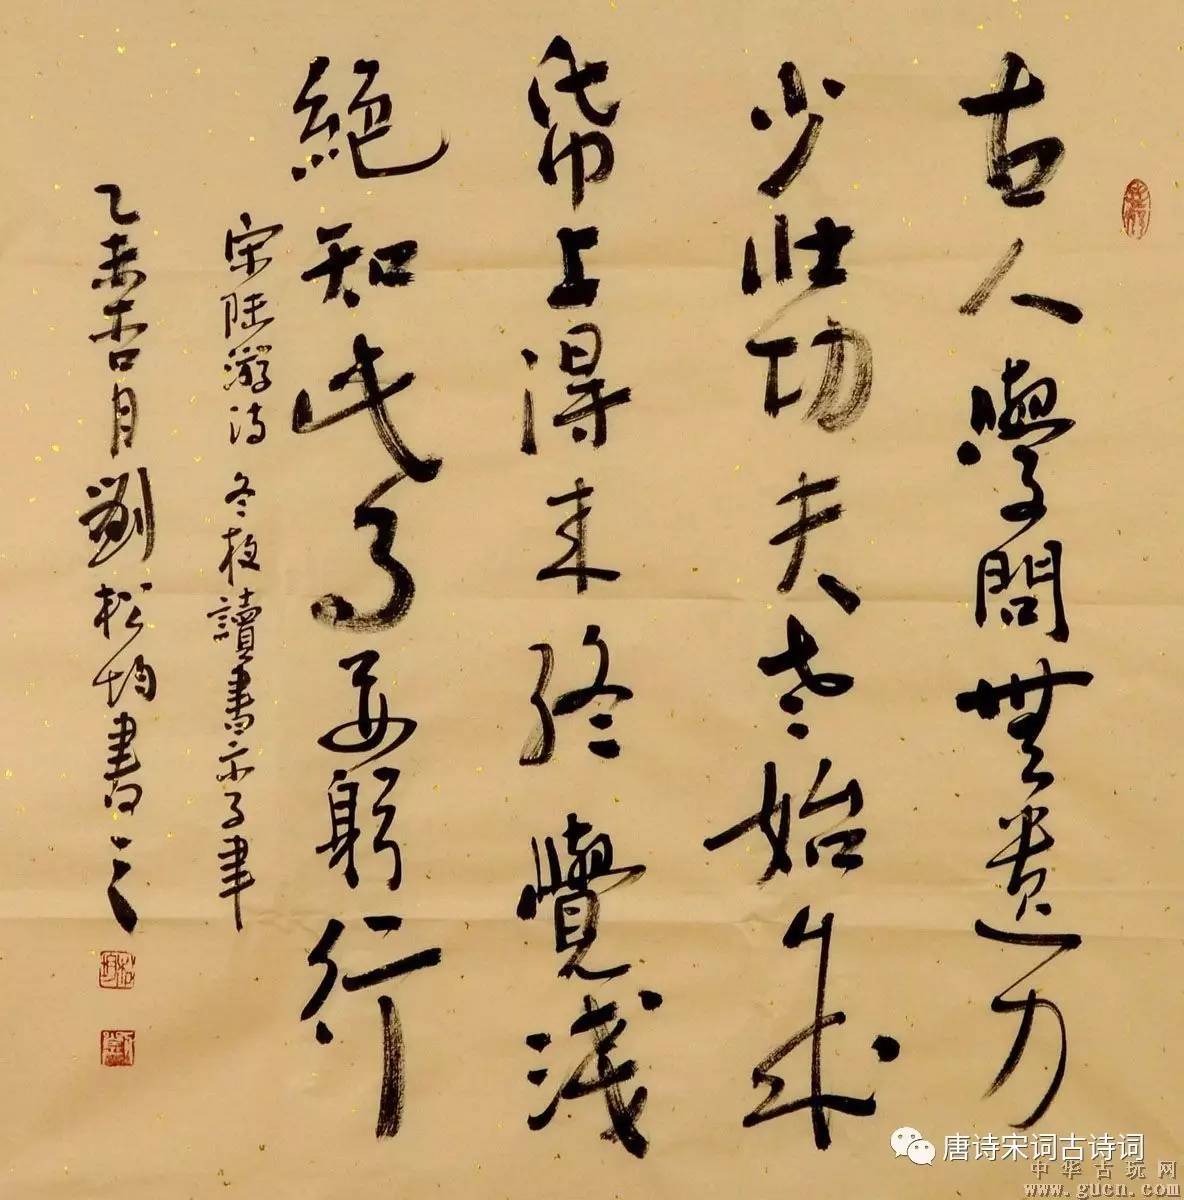 古人學問無遺力
少壯功夫老始成
帋上得来終覺淺
絕知此事要躬行
宋陸游詩 冬夜讀書示子聿
乙未杏月劉松均書之
唐诗宋词古诗词
中华古玩网
www.gucn.com